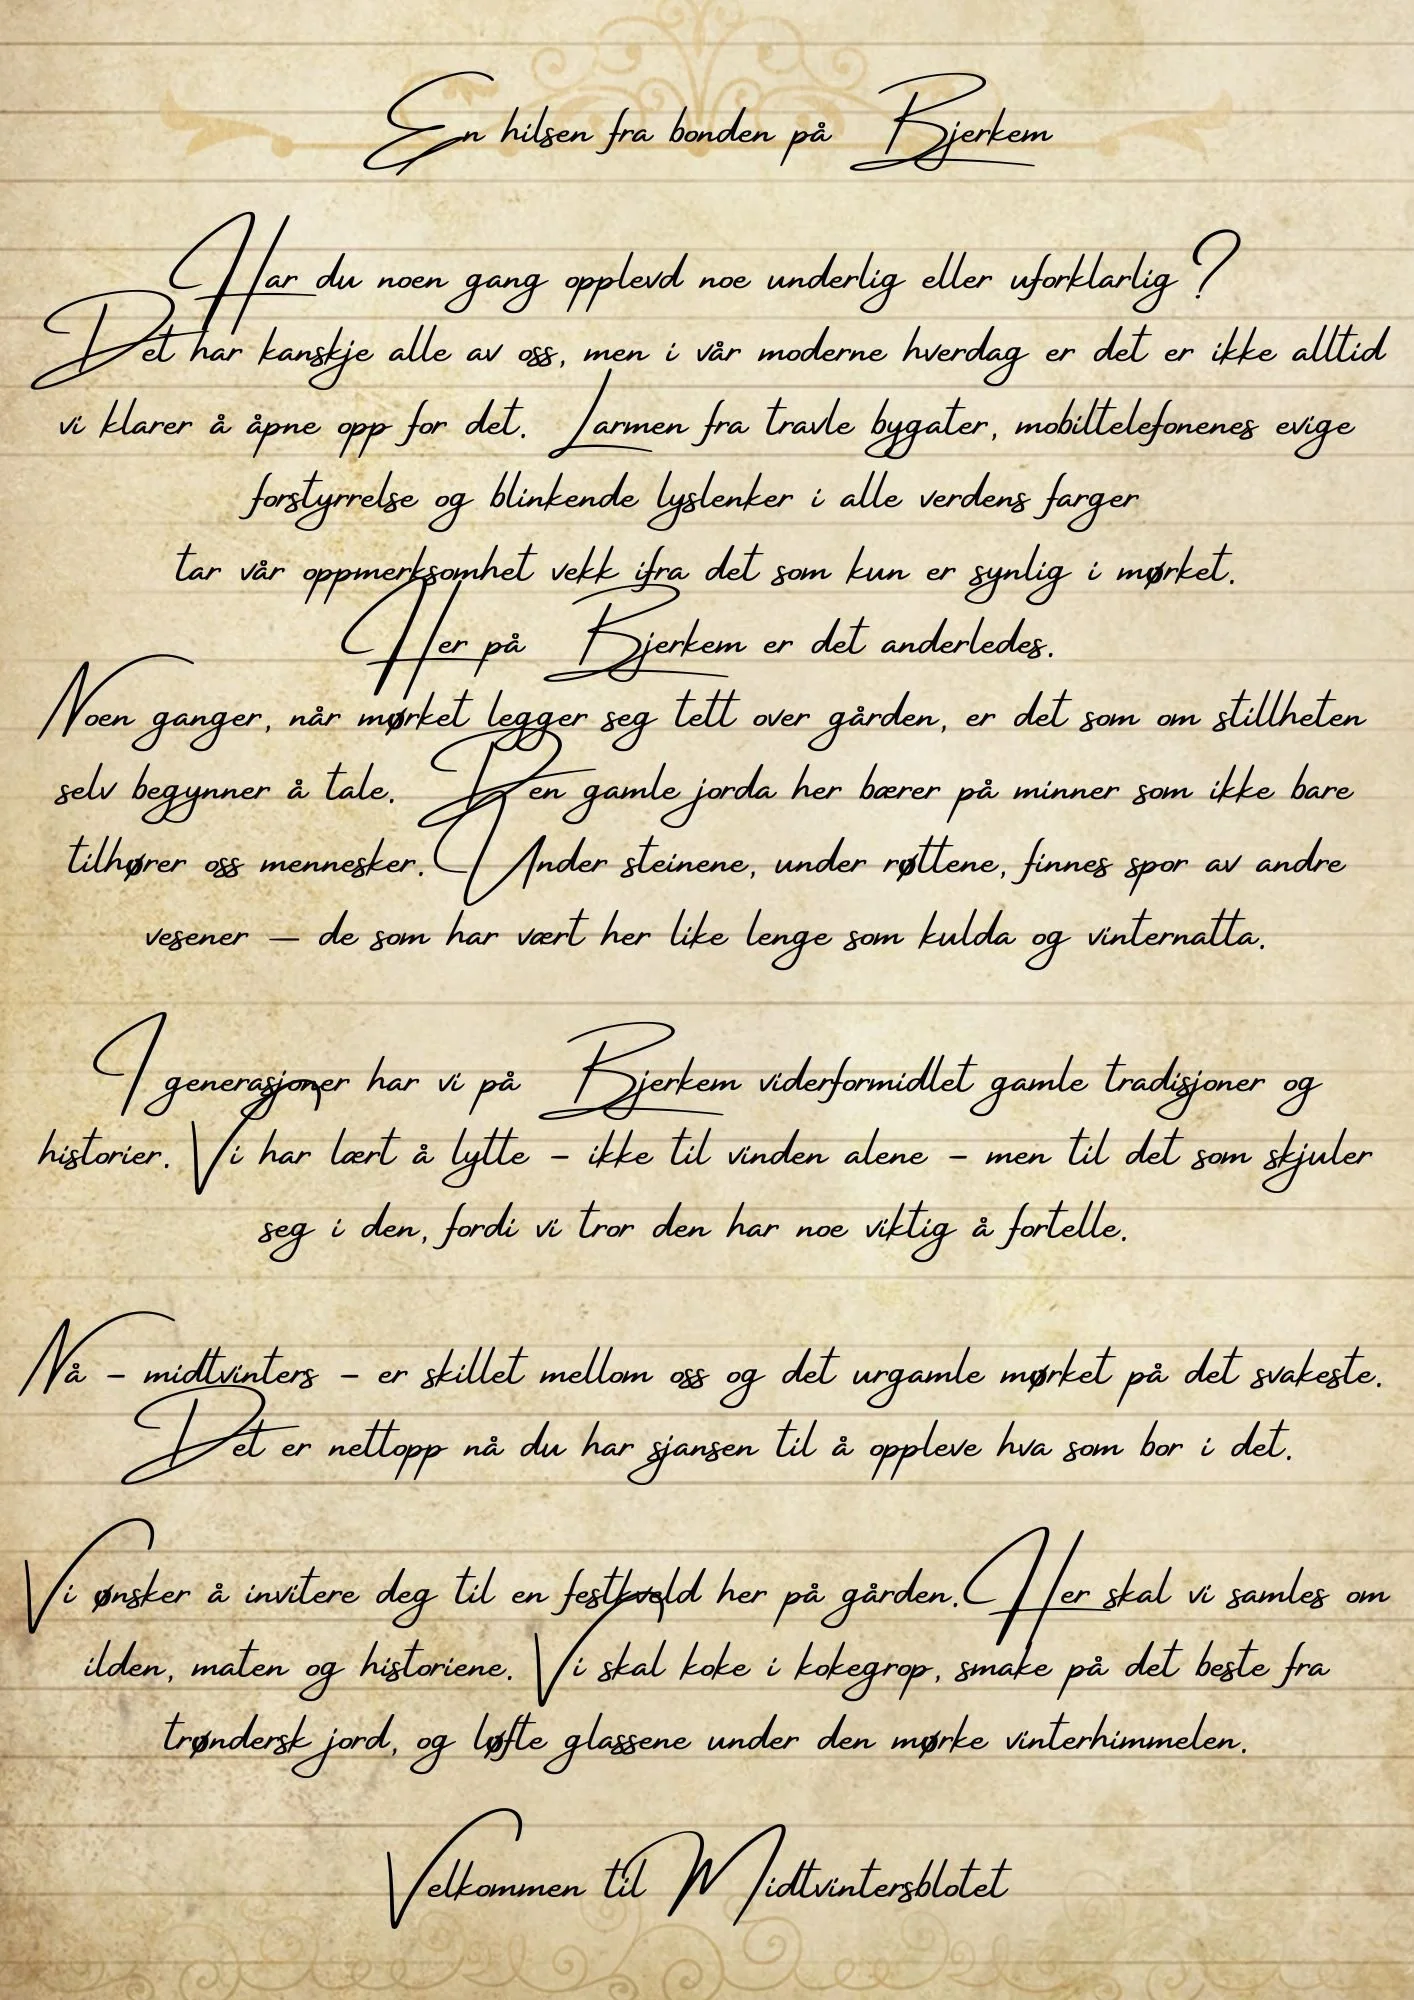 En hilsen fra bonden på Bjerkem
Har du noen gang opplevd noe underlig eller uforklarlig?
Det har kanskje alle av oss, men i vår moderne hverdag er det er ikke alltid
vi klarer å åpne opp for det. Larmen fra travle bygater, mobiltelefonenes evige
forstyrrelse og blinkende lyslenker i alle verdens farger
tar vår oppmerksomhet vekk ifra det som kun er synlig i mørket.
Her på Bjerkem er det anderledes.
Noen ganger, når mørket legger seg tett over gården, er det som om stillheten
selv begynner å tale. Den gamle jorda her bærer på minner som ikke bare
tilhører oss mennesker. Under steinene, under røttene, finnes spor av andre
vesener — de som har vært her like lenge som kulda og vinternatta.
I generasjoner har vi på Bjerkem viderformidlet gamle tradisjoner og
historier. Vi har lært å lytte – ikke til vinden alene – men til det som skjuler
seg i den, fordi vi tror den har noe viktig å fortelle.
Nå – midtvinters – er skillet mellom oss og det urgamle mørket på det svakeste.
Det er nettopp nå du har sjansen til å oppleve hva som bor i det.
Vi ønsker å invitere deg til en festkveld her på gården. Her skal vi samles om
ilden, maten og historiene. Vi skal koke i kokegrop, smake på det beste fra
trøndersk jord, og løfte glassene under den mørke vinterhimmelen.
Velkommen til Midtvintersblotet